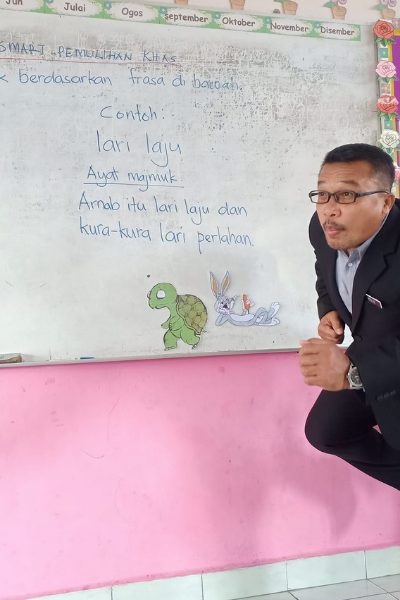 Jun Julai Ogos September Oktober November Disember
SMART PEMULIHAN KHAS
berdasarkan frasa di bawah.
Contoh:
lari laju
Ayat majmuk
Arnab itu lari laju dan
kura-kura lari perlahan.